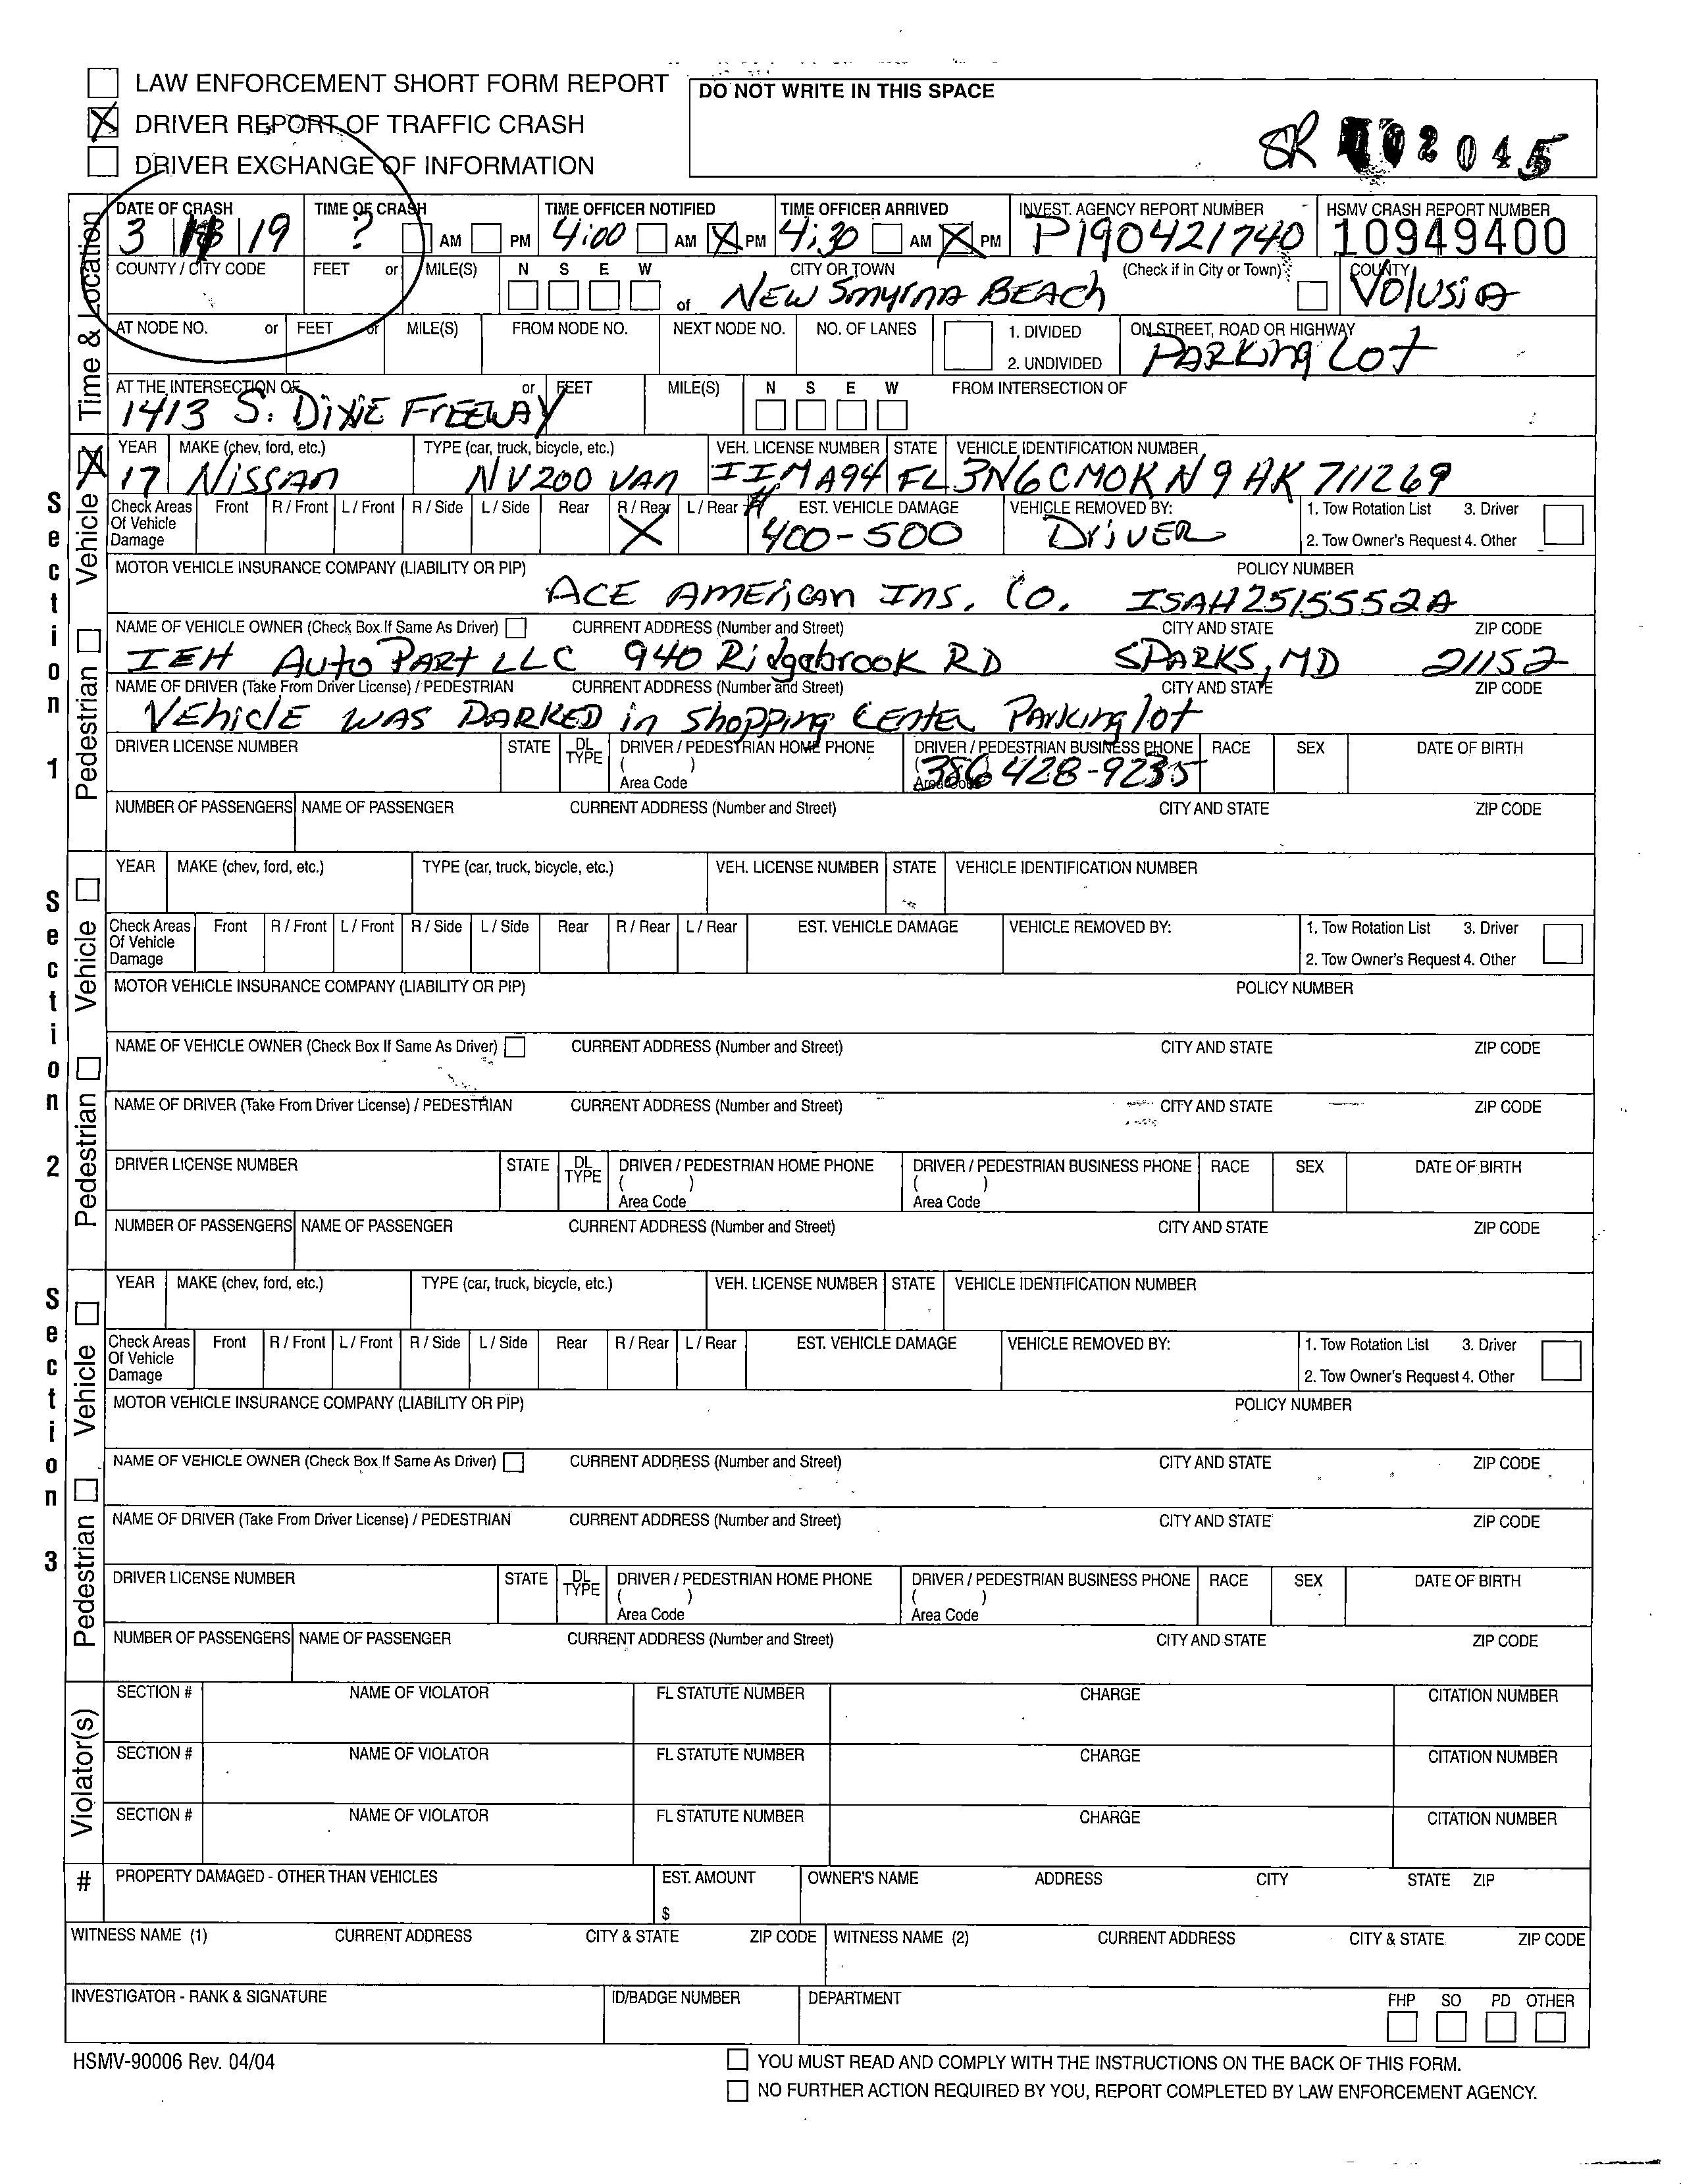 LAW ENFORCEMENT SHORT FORM REPORT
DRIVER REPORT OF TRAFFIC CRASH
DRIVER EXCHANGE OF INFORMATION
DO NOT WRITE IN THIS SPACE
SR 2045
Time & Location
DATE OF CRASH TIME OF CRASH TIME OFFICER NOTIFIED TIME OFFICER ARRIVED INVEST. AGENCY REPORT NUMBER HSMV CRASH REPORT NUMBER
3 19 ? AM PM 4:00 AM PM 4:30 AM PM P190421740 10949400
COUNTY / CITY CODE FEET or MILE(S) N S E W CITY OR TOWN (Check if in City or Town) COUNTY
of NEW Smyrna BEACH Volusia
AT NODE NO. or FEET or MILE(S) FROM NODE NO. NEXT NODE NO. NO. OF LANES 1. DIVIDED 2. UNDIVIDED ON STREET, ROAD OR HIGHWAY
PARKing Lot
AT THE INTERSECTION OF or FEET MILE(S) N S E W FROM INTERSECTION OF
1413 S. DIXIE FREEWAY
Section 1
Vehicle
Pedestrian
YEAR MAKE (chev, ford, etc.) TYPE (car, truck, bicycle, etc.) VEH. LICENSE NUMBER STATE VEHICLE IDENTIFICATION NUMBER
17 Nissan NV200 VAN IIMA94 FL 3N6CM0KN9HK711269
Check Areas Of Vehicle Damage Front R / Front L / Front R / Side L / Side Rear R / Rear L / Rear EST. VEHICLE DAMAGE VEHICLE REMOVED BY: 1. Tow Rotation List 3. Driver
X 400-500 DRIVER 2. Tow Owner's Request 4. Other
MOTOR VEHICLE INSURANCE COMPANY (LIABILITY OR PIP) POLICY NUMBER
ACE AMERICAN INS. CO. ISAH2515552A
NAME OF VEHICLE OWNER (Check Box If Same As Driver) CURRENT ADDRESS (Number and Street) CITY AND STATE ZIP CODE
IEH Auto PART LLC 940 Ridgebrook RD SPARKS, MD 21152
NAME OF DRIVER (Take From Driver License) / PEDESTRIAN CURRENT ADDRESS (Number and Street) CITY AND STATE ZIP CODE
VEhiclE WAS PARKED in Shopping CENTER Parking lot
DRIVER LICENSE NUMBER STATE DL TYPE DRIVER / PEDESTRIAN HOME PHONE DRIVER / PEDESTRIAN BUSINESS PHONE RACE SEX DATE OF BIRTH
( ) Area Code (386 428-9235 Area Code
NUMBER OF PASSENGERS NAME OF PASSENGER CURRENT ADDRESS (Number and Street) CITY AND STATE ZIP CODE
Section 2
Vehicle
Pedestrian
YEAR MAKE (chev, ford, etc.) TYPE (car, truck, bicycle, etc.) VEH. LICENSE NUMBER STATE VEHICLE IDENTIFICATION NUMBER
Check Areas Of Vehicle Damage Front R / Front L / Front R / Side L / Side Rear R / Rear L / Rear EST. VEHICLE DAMAGE VEHICLE REMOVED BY: 1. Tow Rotation List 3. Driver
2. Tow Owner's Request 4. Other
MOTOR VEHICLE INSURANCE COMPANY (LIABILITY OR PIP) POLICY NUMBER
NAME OF VEHICLE OWNER (Check Box If Same As Driver) CURRENT ADDRESS (Number and Street) CITY AND STATE ZIP CODE
NAME OF DRIVER (Take From Driver License) / PEDESTRIAN CURRENT ADDRESS (Number and Street) CITY AND STATE ZIP CODE
DRIVER LICENSE NUMBER STATE DL TYPE DRIVER / PEDESTRIAN HOME PHONE DRIVER / PEDESTRIAN BUSINESS PHONE RACE SEX DATE OF BIRTH
( ) Area Code ( ) Area Code
NUMBER OF PASSENGERS NAME OF PASSENGER CURRENT ADDRESS (Number and Street) CITY AND STATE ZIP CODE
Section 3
Vehicle
Pedestrian
YEAR MAKE (chev, ford, etc.) TYPE (car, truck, bicycle, etc.) VEH. LICENSE NUMBER STATE VEHICLE IDENTIFICATION NUMBER
Check Areas Of Vehicle Damage Front R / Front L / Front R / Side L / Side Rear R / Rear L / Rear EST. VEHICLE DAMAGE VEHICLE REMOVED BY: 1. Tow Rotation List 3. Driver
2. Tow Owner's Request 4. Other
MOTOR VEHICLE INSURANCE COMPANY (LIABILITY OR PIP) POLICY NUMBER
NAME OF VEHICLE OWNER (Check Box If Same As Driver) CURRENT ADDRESS (Number and Street) CITY AND STATE ZIP CODE
NAME OF DRIVER (Take From Driver License) / PEDESTRIAN CURRENT ADDRESS (Number and Street) CITY AND STATE ZIP CODE
DRIVER LICENSE NUMBER STATE DL TYPE DRIVER / PEDESTRIAN HOME PHONE DRIVER / PEDESTRIAN BUSINESS PHONE RACE SEX DATE OF BIRTH
( ) Area Code ( ) Area Code
NUMBER OF PASSENGERS NAME OF PASSENGER CURRENT ADDRESS (Number and Street) CITY AND STATE ZIP CODE
Violator(s)
SECTION # NAME OF VIOLATOR FL STATUTE NUMBER CHARGE CITATION NUMBER
SECTION # NAME OF VIOLATOR FL STATUTE NUMBER CHARGE CITATION NUMBER
SECTION # NAME OF VIOLATOR FL STATUTE NUMBER CHARGE CITATION NUMBER
# PROPERTY DAMAGED - OTHER THAN VEHICLES EST. AMOUNT OWNER'S NAME ADDRESS CITY STATE ZIP
$
WITNESS NAME (1) CURRENT ADDRESS CITY & STATE ZIP CODE WITNESS NAME (2) CURRENT ADDRESS CITY & STATE ZIP CODE
INVESTIGATOR - RANK & SIGNATURE ID/BADGE NUMBER DEPARTMENT FHP SO PD OTHER
HSMV-90006 Rev. 04/04
YOU MUST READ AND COMPLY WITH THE INSTRUCTIONS ON THE BACK OF THIS FORM.
NO FURTHER ACTION REQUIRED BY YOU, REPORT COMPLETED BY LAW ENFORCEMENT AGENCY.